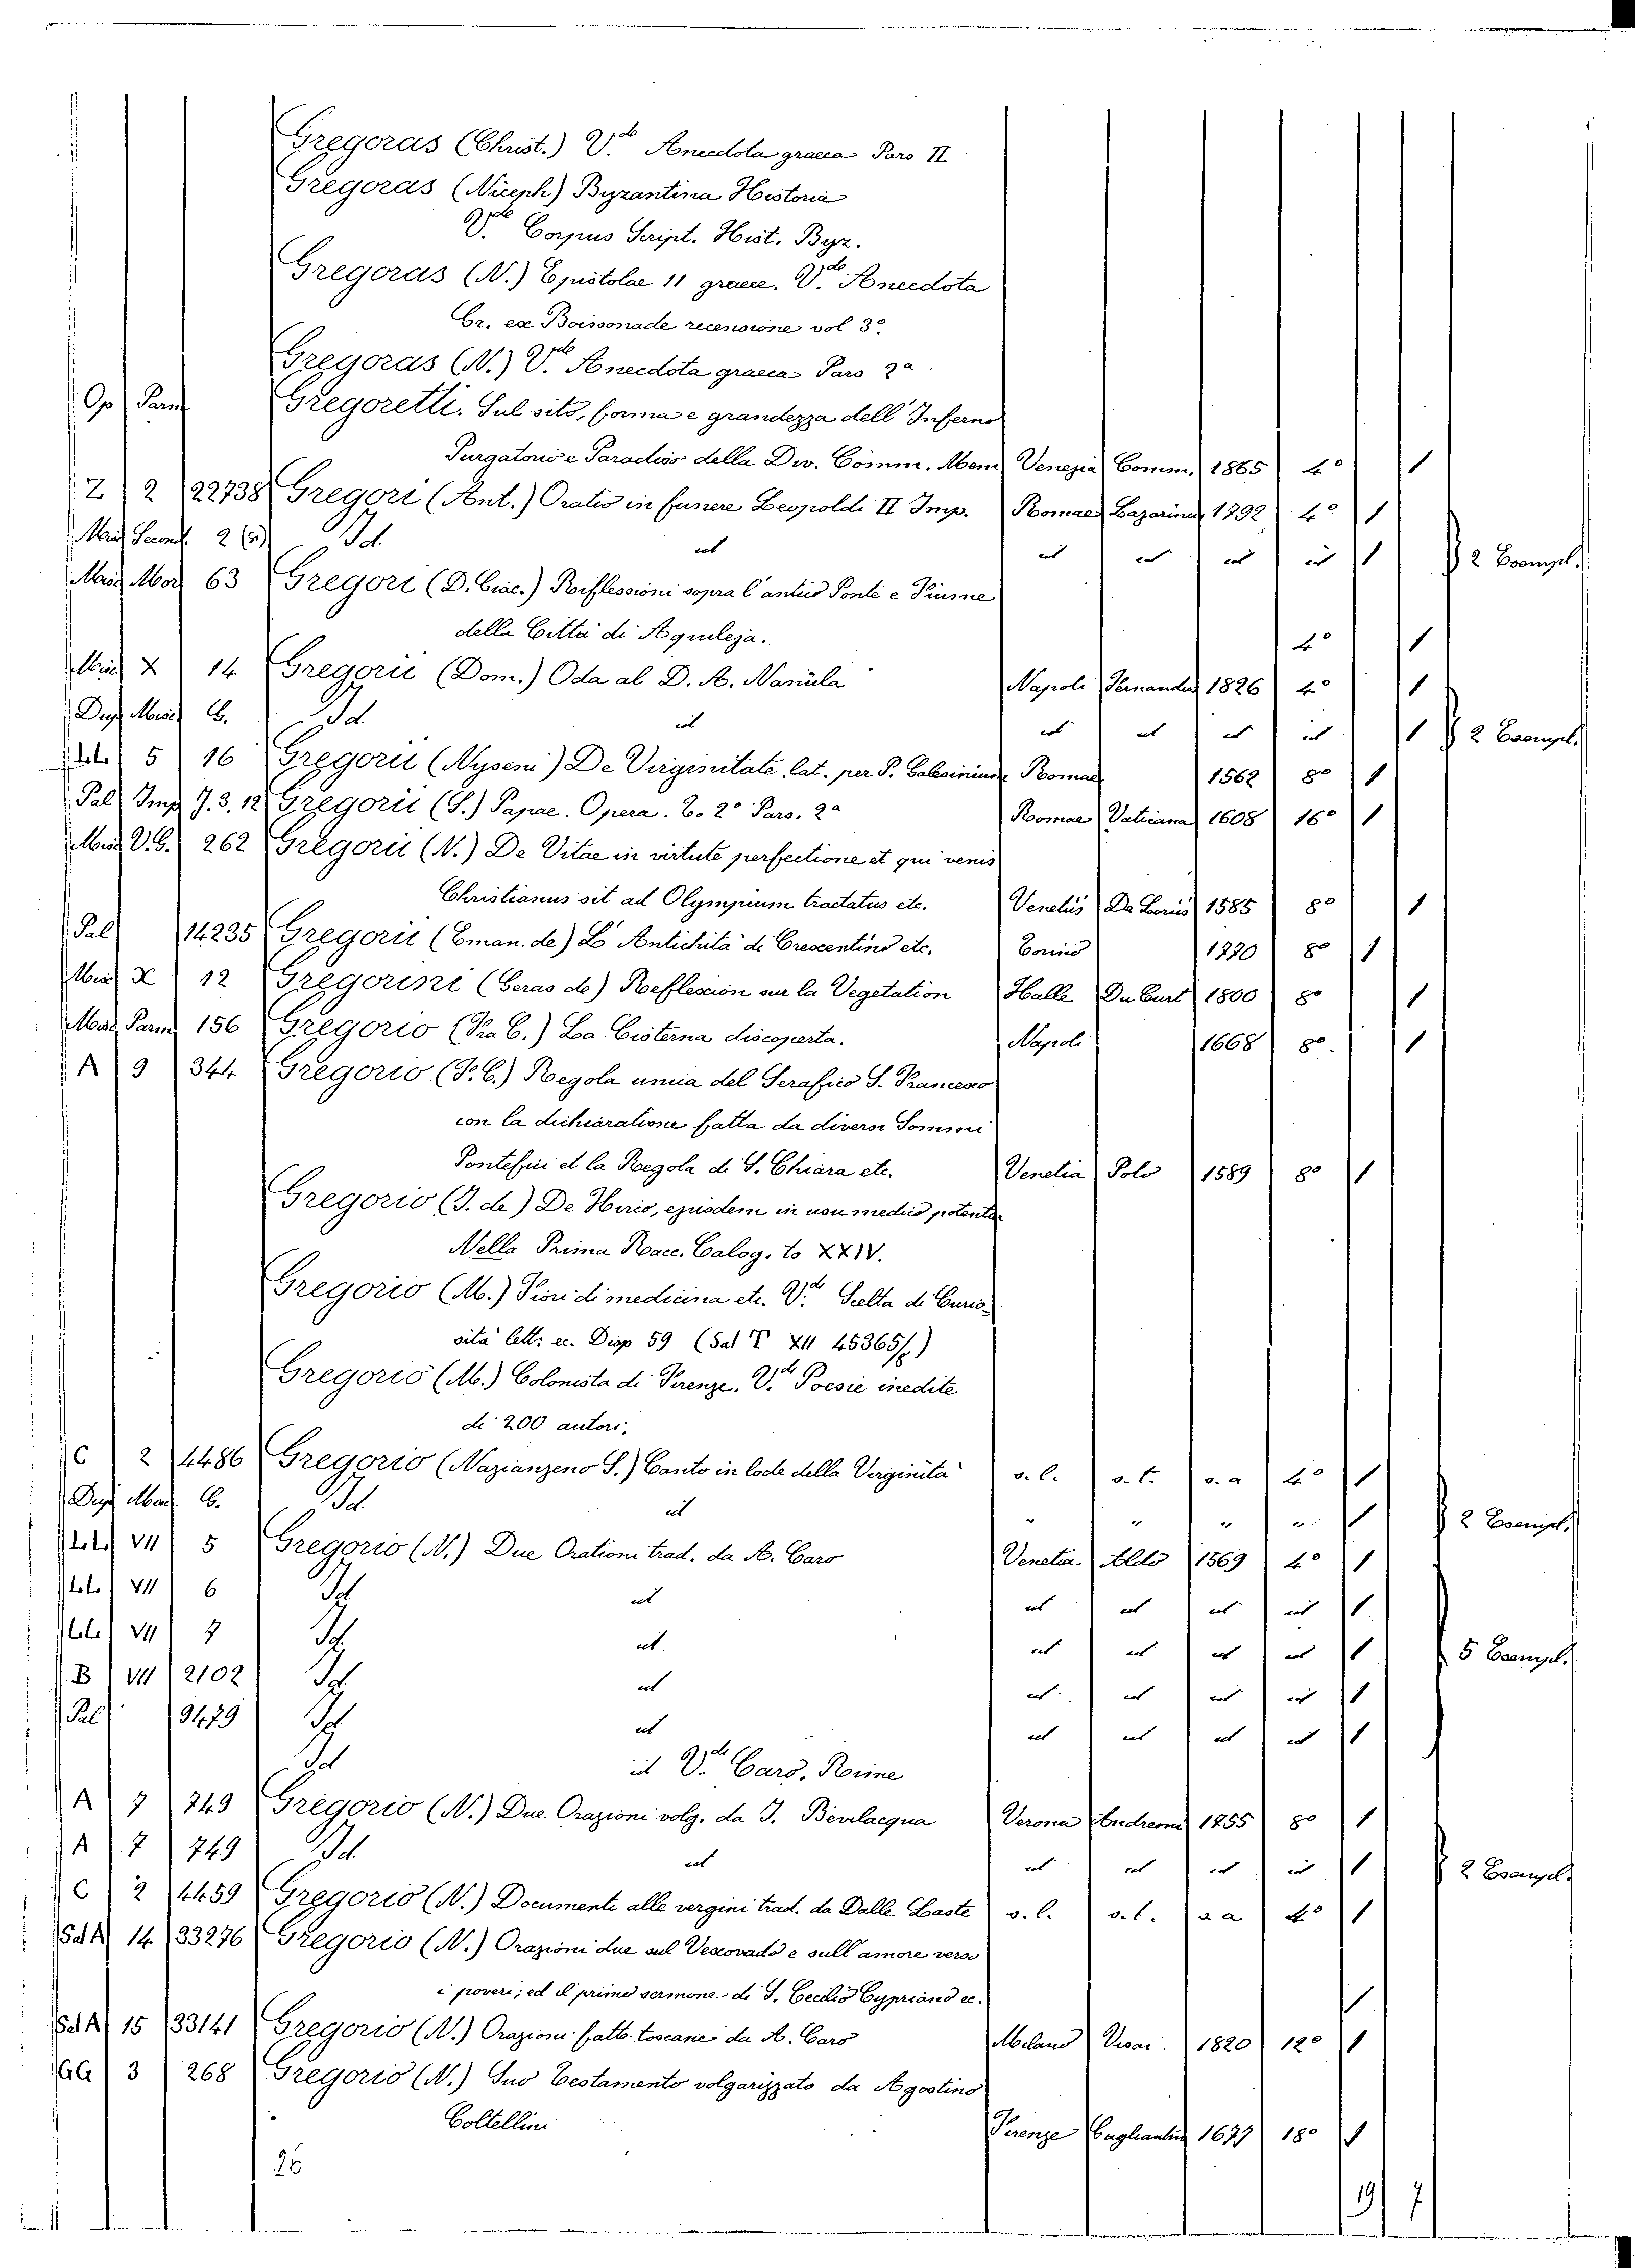 Gregoras (Christ.) V.de Anecdota graeca Pars II
Gregoras (Niceph) Byzantina Historia
V.de Corpus Script. Hist. Byz.
Gregoras (N.) Epistolae 11 graece. V.de Anecdota
Gr. ex Boissonade recensione vol 3°.
Gregoras (N.) V.de Anecdota graeca Pars 2a
Op Parm Gregoretti. Sul sito, forma e grandezza dell'Inferno
Purgatorio e Paradiso della Div. Comm. Mem Venezia Comm. 1865 4° 1
Z 2 22738 Gregori (Ant.) Oratio in funere Leopoldi II Imp. Romae Lazarinus 1792 4° 1
2 (5) Id. ut ut ut ut ut 1 2 Esempl.
Misc Mor 63 Gregori (D. Giac.) Riflessioni sopra l'antico Ponte e Fiume
della Città di Aquileja. 4° 1
Misc X 14 Gregorii (Dom.) Oda al D. A. Nanula Napoli Fernandes 1826 4° 1
Dup. Misc B. Id. ut ut ut ut ut 1 2 Esempl.
5 16 Gregorii (Nyseni) De Virginitate, lat. per P. Galesinium Romae 1562 8° 1
Pal Imp J. 3. 12 Gregorii (S.) Papae. Opera. to 2° Pars. 2a Romae Vaticana 1608 16° 1
262 Gregorii (N.) De Vitae in virtute perfectione et qui venis
Christianus sit ad Olympium tractatus etc. Venetiis 1585 8° 1
Pal 14235 Gregorii (Eman. de) Lo Antichità di Crescentino etc. Torino 1770 8° 1
Misc X 12 Gregorini (Geras de) Reflexion sur la Vegetation Halle Du Curt 1800 8° 1
Parm 156 Gregorio (Fra C.) La Cisterna discoperta. Napoli 1668 8°. 1
A 9 344 Gregorio (F. C.) Regola unica del Serafico S. Francesco
con la dichiaratione fatta da diversi Sommi
Pontefici et la Regola di S. Chiara etc. Venetia Polo 1589 8° 1
Gregorio (J. de) De Hirio, ejusdem in usu medico potentia
Nella Prima Racc. Calog. to XXIV.
Gregorio (M.) Fiori di medicina etc. V.de Scelta di Curio-
sità lett: ec. Disp 59 (Sal T XII 45365/f)
Gregorio (M.) Colonista di Firenze. V.de Poesie inedite
di 200 autori.
C 2 4486 Gregorio (Nazianzeno S.) Canto in lode della Verginità s. l. s. t. s. a 4° 1
Dup. Misc B. Id. ut " " " " 1 2 Esempl.
VII 5 Gregorio (N.) Due Orationi trad. da A. Caro Venetia Aldo 1569 4° 1
VII 6 Id. ut ut ut ut ut 1
VII 7 Id. ut. ut ut ut ut 1 5 Esempl.
B VII 2102 Id. ut ut. ut ut ut 1
Pal 9479 Id. ut ut ut ut ut 1
Id. ut V.de Caro. Rime
A 7 749 Gregorio (N.) Due Orazioni volg. da J. Bevilacqua Verona Andreoni 1755 8° 1
A 7 749 Id. ut ut ut ut ut 1 2 Esempl.
C 2 4459 Gregorio (N.) Documente alle vergini trad. da Dalle Laste s. l. s. t. s. a 4° 1
Sal A 14 33276 Gregorio (N.) Orazioni due sul Vescovado e sull'amore verso
i poveri; ed il primo sermone di S. Cecilio Cypriano ec.
Sal A 15 33141 Gregorio (N.) Orazioni fatte toscane da A. Caro Milano Visai. 1820 12° 1
GG 3 268 Gregorio (N.) Suo Testamento volgarizzato da Agostino
Coltellini Firenze 1677 18° 1
26
19 7